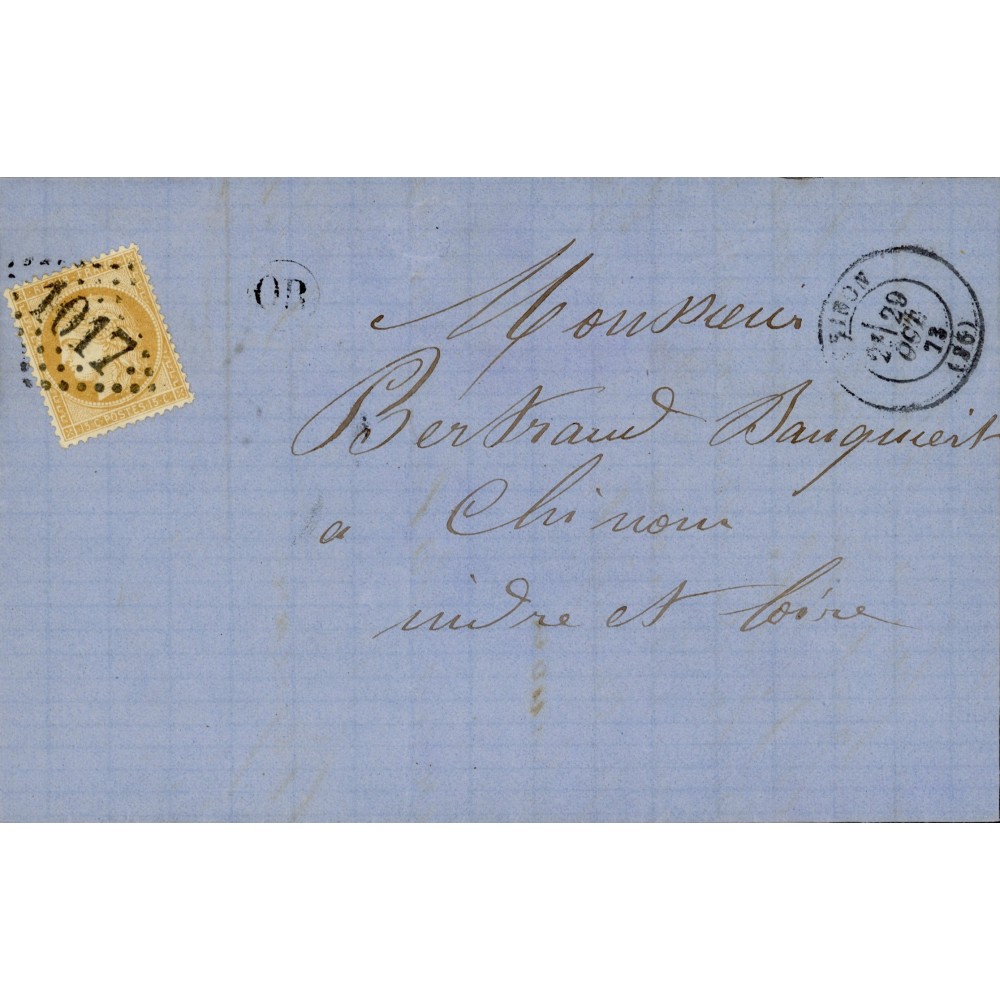 1017
15 C. POSTES 15 C.
OR
Monsieur
Bertrand Banquiert
a Chinon
indre et loire
2E / 29
OCT
73
(36)